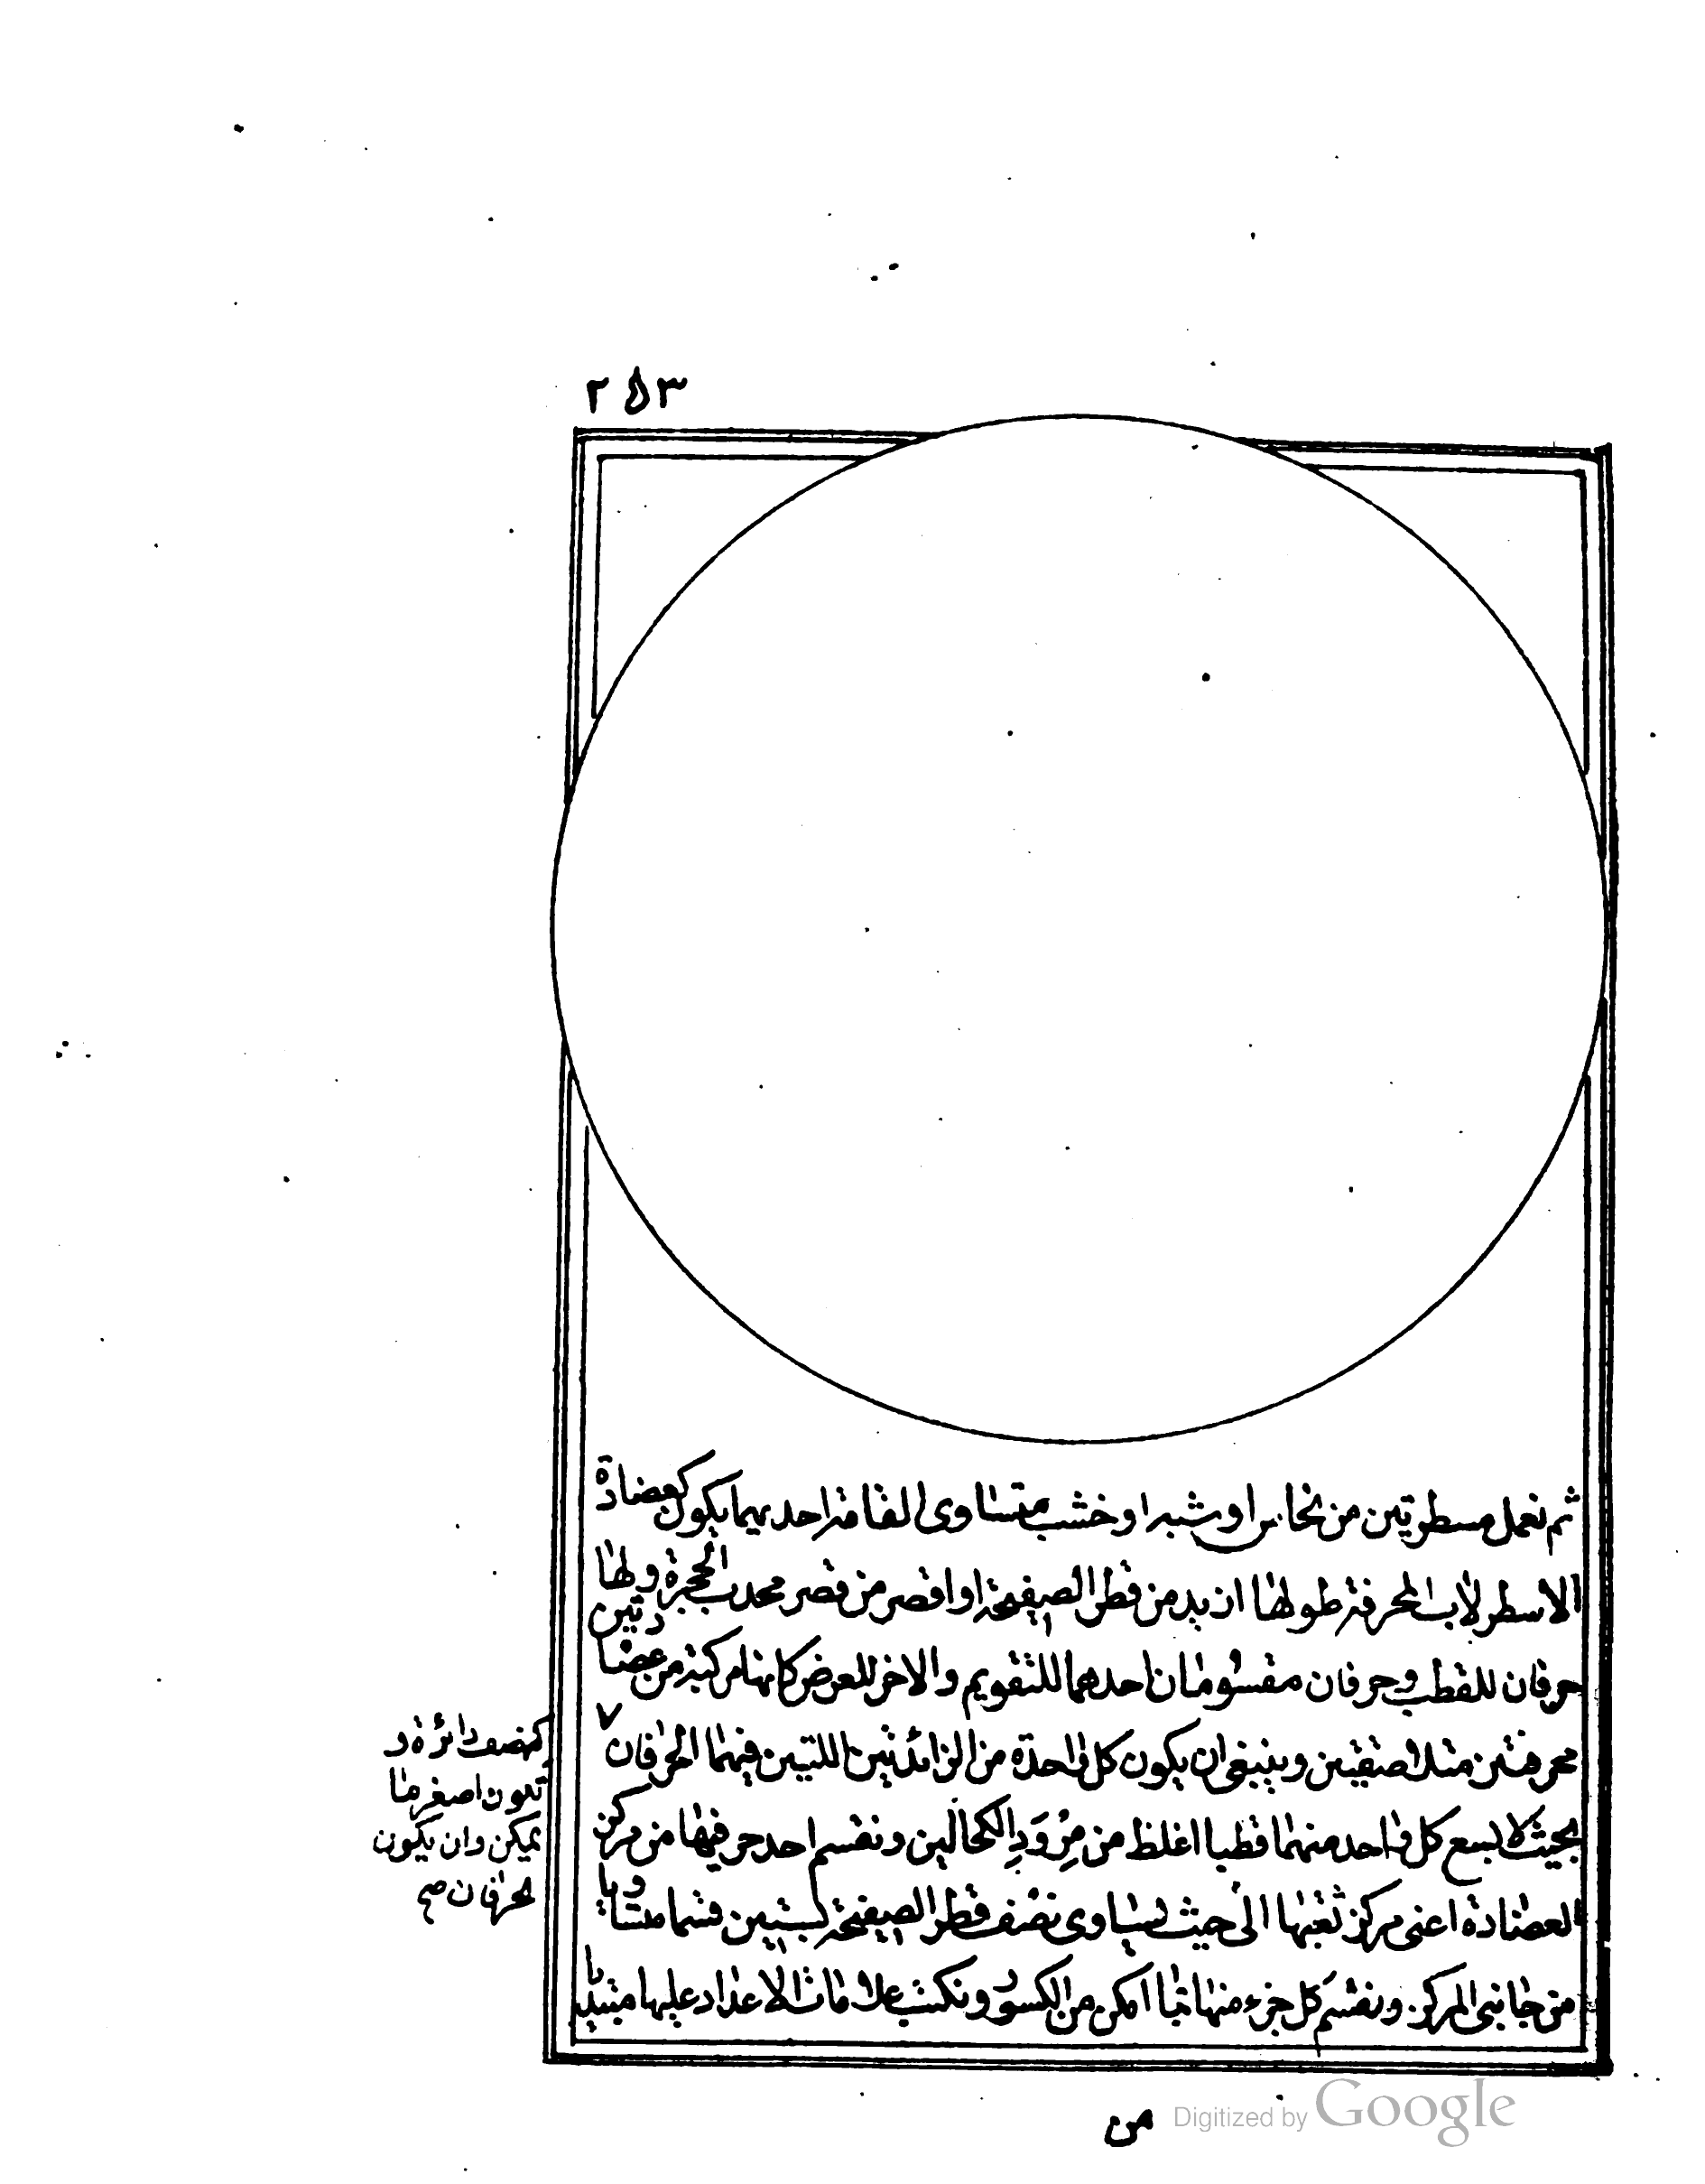 ٢٥٣
ثم نعمل مسطرتين من نحاس او شبه او خشب متساوى القامة احديهما يكون كعضادة
الاسطرلاب المحرفة طولها ازيد من قطر الصفيحة او اقصر من قصر محدب الحجرة ولها
حرفان للقطب وحرفان مقسومان احدهما للتقويم والاخر للعرض كانها مركبة من عضادتين
محرفتين متلاصقتين وينبغى ان يكون كل واحدة من الزائدتين اللتين فيهما الحرفان
بحيث لا يسع كل واحد منهما قطبا اغلظ من مِرْوَدِ الكحالين ونقسم احد حرفيها من مركز
العضادة اعنى مركز ثقبها الى حيث يساوى نصف قطر الصفيحة بستين قسما متساويا
من جانبى المركز ونقسم كل جزء منها بما امكن من الكسور ونكتب علامات الاعداد عليها مبتديا
كنصف دائرة و
تكون اصغر ما
يمكن وان يكون
الحرفان صح
من
Digitized by Google